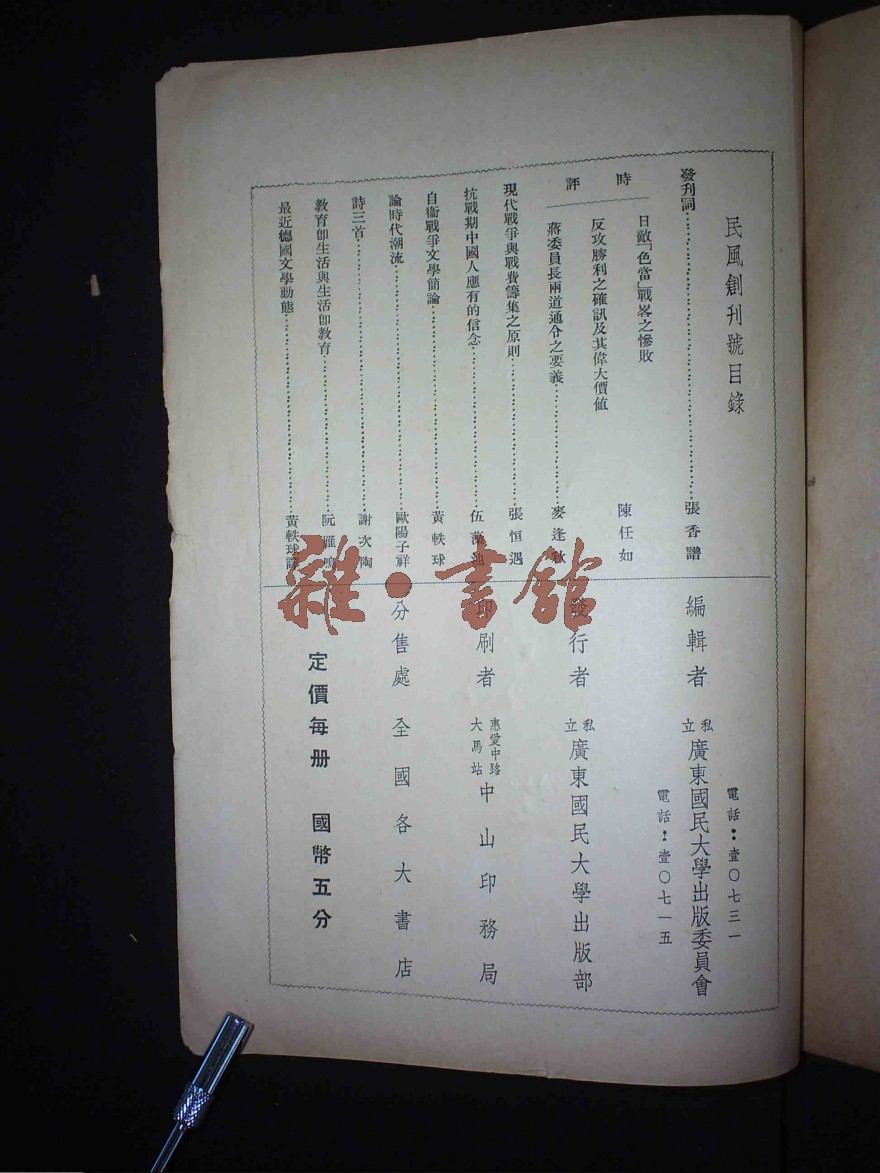 民風創刊號目錄
發刊詞 張香譜
時評
日敵「色當」戰畧之慘敗
反攻勝利之確訊及其偉大價值 陳任如
蔣委員長兩道通令之要義 麥逢
現代戰爭與戰費籌集之原則 張恒遇
抗戰期中國人應有的信念 伍
自衞戰爭文學簡論 黃軼球
論時代潮流 歐陽子祥
詩三首 謝次陶
教育卽生活與生活卽教育 阮
最近德國文學動態 黃軼球
電話：壹〇七三一
編輯者 私立廣東國民大學出版委員會
電話：壹〇七一五
發行者 私立廣東國民大學出版部
印刷者 惠愛中路大馬站 中山印務局
分售處 全國各大書店
定價每册 國幣五分
雜·書館